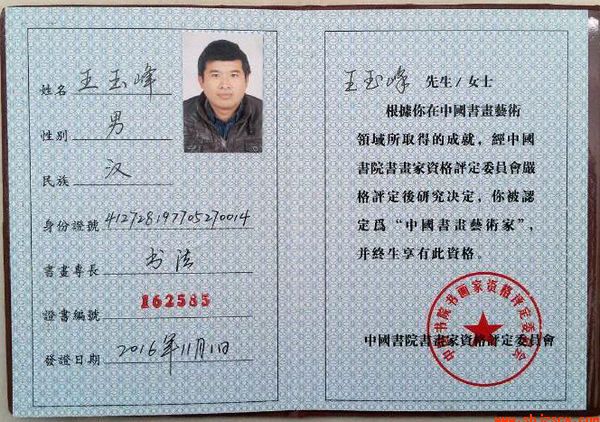 姓名 王玉峰
性别 男
民族 汉
身份證號 412728197705270014
書畫專長 书法
證書編號 162585
發證日期 2016年11月1日
王玉峰 先生/女士
根據你在中國書畫藝術
領域所取得的成就，經中國
書院書畫家資格評定委員會嚴
格評定後研究決定，你被認
定爲“中國書畫藝術家”，
并終生享有此資格。
中國書院書畫家資格評定委員會
中国书院书画家资格评定委员会